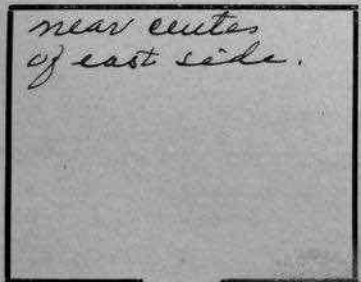 near center
of east side.